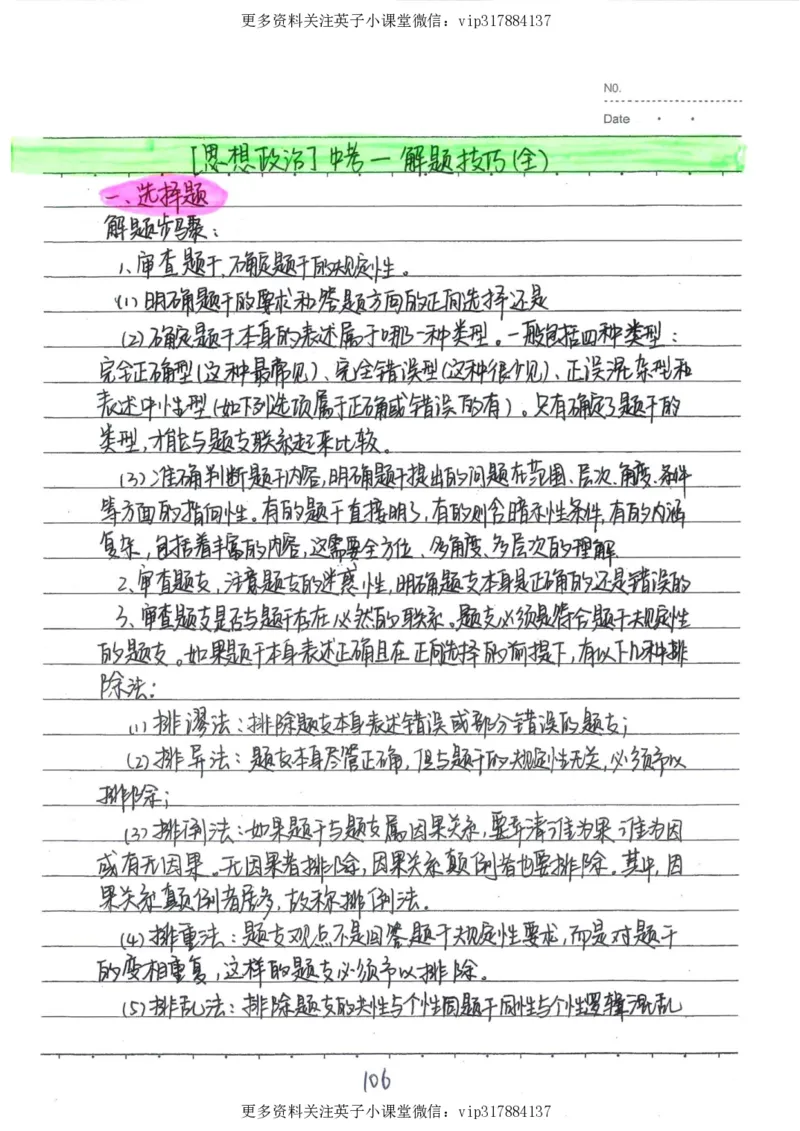 更多资料关注英子小课堂微信：vip317884137
N0.
Date
[思想政治]中考一解题技巧(全)
一、选择题
解题步骤：
1、审查题干,确定题干的规定性。
(1)明确题干的要求和答题方面的正向选择还是
(2)确定题干本身的表述属于哪一种类型。一般包括四种类型：
完全正确型(这种最常见)、完全错误型(这种很少见)、正误混杂型和
表述中性型(如下列选项属于正确或错误的有)。只有确定了题干的
类型,才能与题支联系起来比较。
(3)准确判断题干内容,明确题干提出的问题在范围、层次、角度、条件
等方面的指向性。有的题干直接明了,有的则含暗示性条件,有的内涵
复杂,包括着丰富的内容,这需要全方位、多角度、多层次的理解
2、审查题支,注意题支的迷惑性,明确题支本身是正确的还是错误的
3、审查题支是否与题干存在必然的联系。题支必须是符合题干规定性
的题支。如果题干本身表述正确且在正向选择的前提下,有以下几种排
除法：
(1)排谬法：排除题支本身表述错误或部分错误的题支；
(2)排异法：题支本身尽管正确,但与题干的规定性无关,必须予以
排除；
(3)排倒法：如果题干与题支属因果关系,要弄清谁为果谁为因
或有无因果。无因果者排除,因果关系颠倒者也要排除。其中,因
果关系颠倒者居多,故称排倒法。
(4)排重法：题支观点不是回答题干规定性要求,而是对题干
的变相重复,这样的题支必须予以排除。
(5)排乱法：排除题支的共性与个性同题干同性与个性逻辑混乱
106
更多资料关注英子小课堂微信：vip317884137